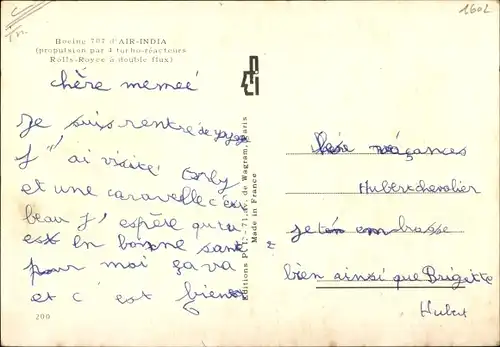 1602
Boeing 707 d'AIR-INDIA
(propulsion par 4 turbo-réacteurs
Rolls-Royce à double flux)
chère memeé
je suis rentré de voyage
J'ai visité Orly
et une caravelle c'est
beau J' espère qu tu
est en bonne santé
pour moi ça va
et c' est bien
200
Editions P.I. - 71, av. de Wagram, Paris
Made in France
vacances
Hubert chevalier
je t'en embrasse
bien ainsi que Brigitte
Hubert